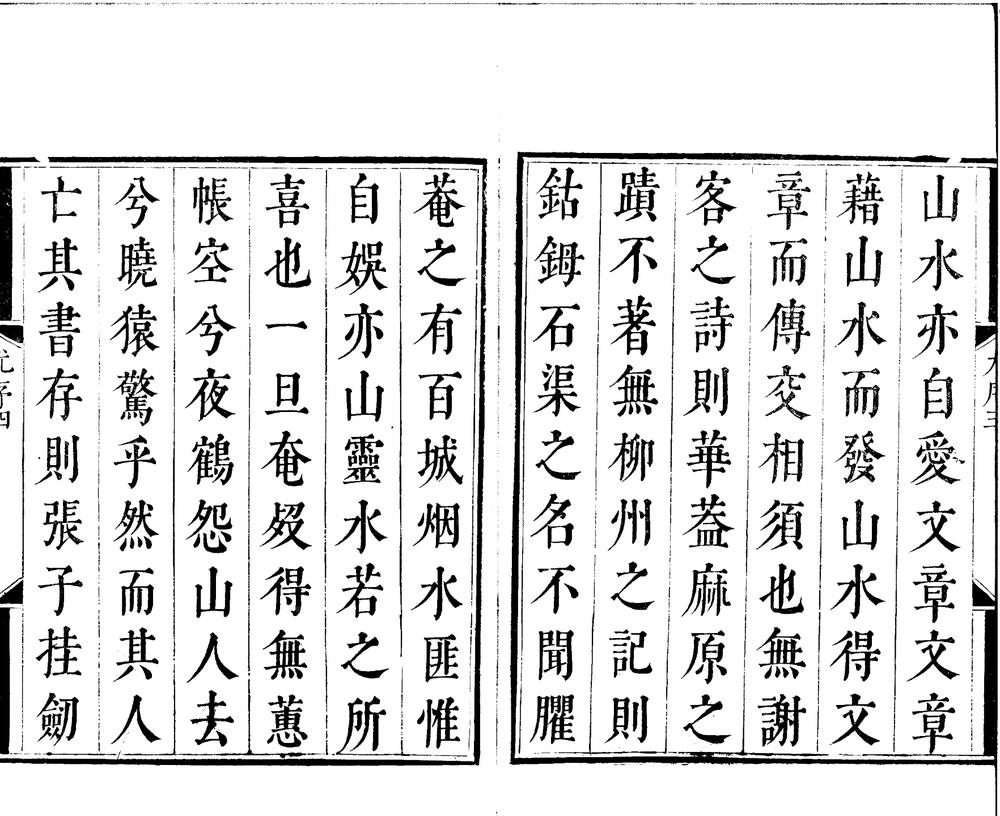 山水亦自愛文章文章
藉山水而發山水得文
章而傳交相須也無謝
客之詩則華葢麻原之
蹟不著無柳州之記則
鈷鉧石渠之名不聞臞
菴之有百城烟水匪惟
自娛亦山靈水若之所
喜也一旦奄歿得無蕙
帳空兮夜鶴怨山人去
兮曉猿驚乎然而其人
亡其書存則張子挂劒
尤序四